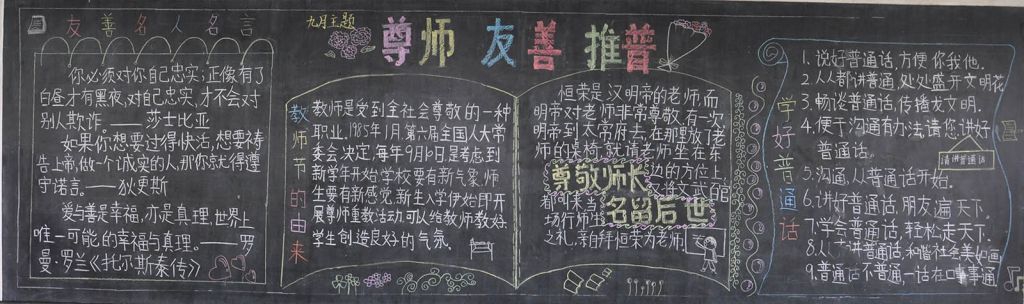 友善名人名言
你必须对你自己忠实；正像有了
白昼才有黑夜，对自己忠实，才不会对
别人欺诈。——莎士比亚
如果你想要过得快活，想要祷
告上帝，做一个诚实的人，那你就得遵
守诺言。——狄更斯
爱与善是幸福，亦是真理，世界上
唯一可能的幸福与真理。——罗
曼·罗兰《托尔斯泰传》
九月主题
尊师 友善 推普
教师节的由来
教师是受到全社会尊敬的一种
职业，1985年1月，第六届全国人大常
委会，决定，每年9月10日是考虑到
新学年开始学校要有新气象，师
生要有新感觉，新生入学伊始即开
展尊师重教活动可以给教师教好，
学生创造良好的气氛。
恒荣是汉明帝的老师，而
明帝对老师非常尊敬，有一次
明帝到太常府去，在那里放了老
师的桌椅，就请老师坐在东
边的方位上，
又将文武百官
都叫来，当
场行师
之礼，亲自拜恒荣为老师
尊敬师长
名留后世
学好普通话
1.说好普通话，方便你我他。
2.人人都讲普通，处处盛开文明花
3.畅谈普通话，传播龙文明。
4.便于沟通有办法，请您讲好
普通话。
请讲普通话
5.沟通，从普通话开始。
6.讲好普通话，朋友遍天下。
7.学会普通话，轻松走天下。
8.人人讲普通话，和谐社会美如画
9.普通话不普通，一话在口事事通